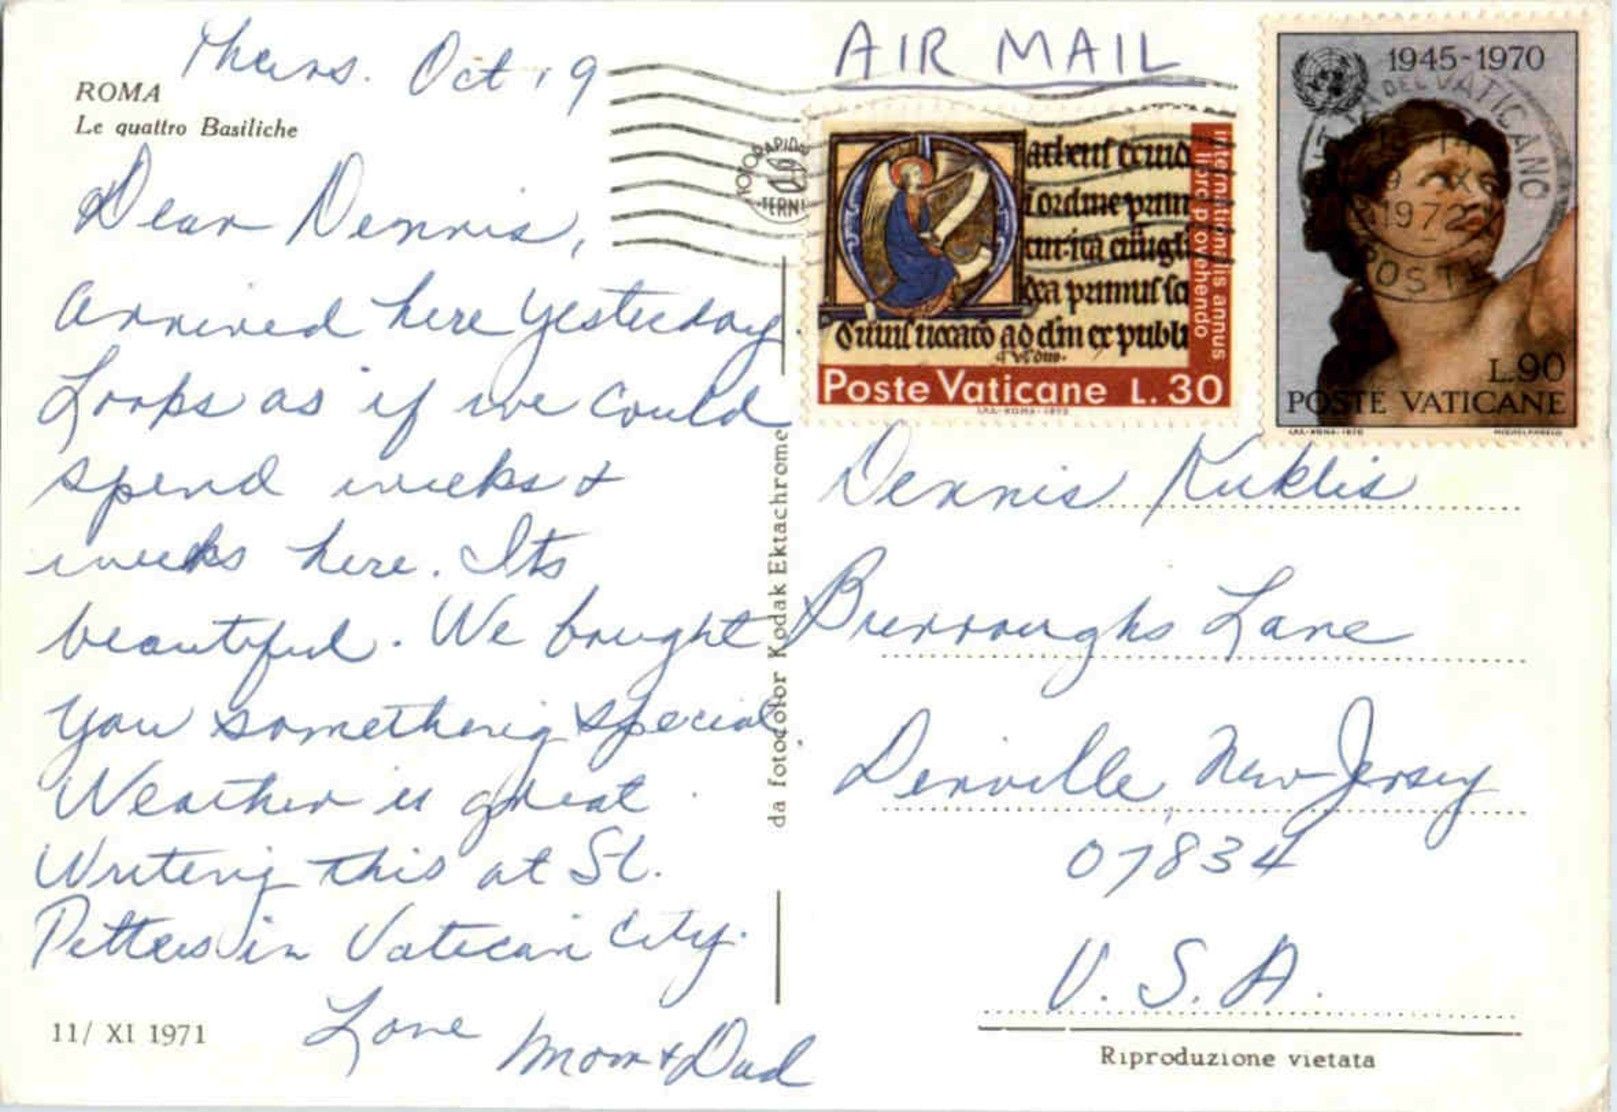 Thurs. Oct 19
ROMA
Le quattro Basiliche
Dear Dennis,
arrived here yesterday.
Looks as if we could
spend weeks &
weeks here. Its
beautiful. We bought
you something special
Weather is great.
Writing this at St.
Petters in Vatican City.
Love
Mom & Dad
11/ XI 1971
da fotocolor Kodak Ektachrome
AIR MAIL
internationalis annus
libro provehendo
Poste Vaticane L.30
1945-1970
L.90
POSTE VATICANE
CITTÀ DEL VATICANO
1972
POSTE
Dennis Kuklis
Burroughs Lane
Denville New Jersey
07834
U.S.A.
Riproduzione vietata